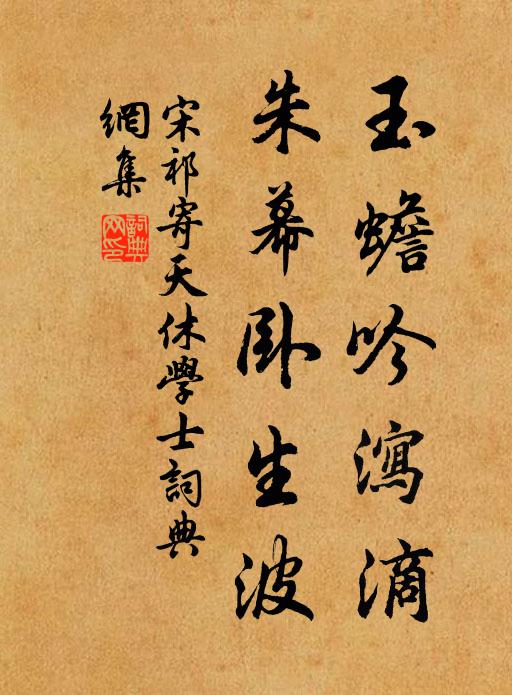 玉蟾吟瀉滴
朱幕臥生波
宋祁寄天休學士詞典
網集
詞典網印